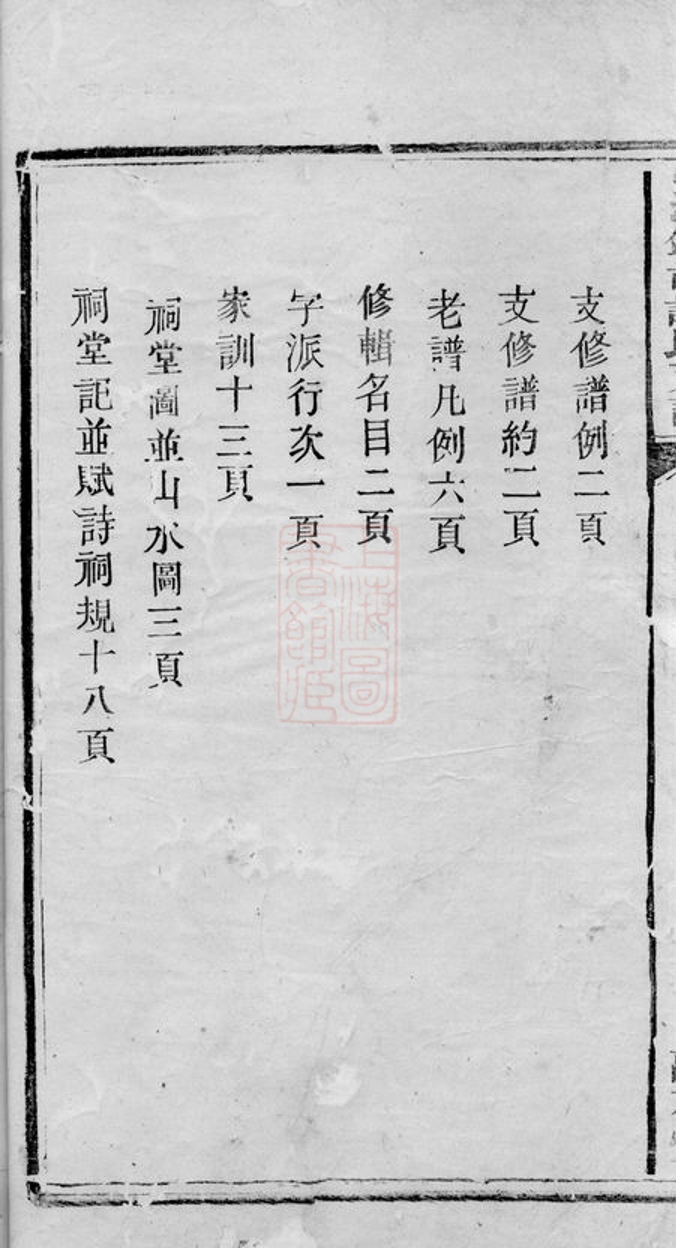 支修譜例二頁
支修譜約二頁
老譜凡例六頁
修輯名目二頁
字派行次一頁
家訓十三頁
祠堂圖並山水圖三頁
祠堂記並賦詩祠規十八頁
上海圖書館藏